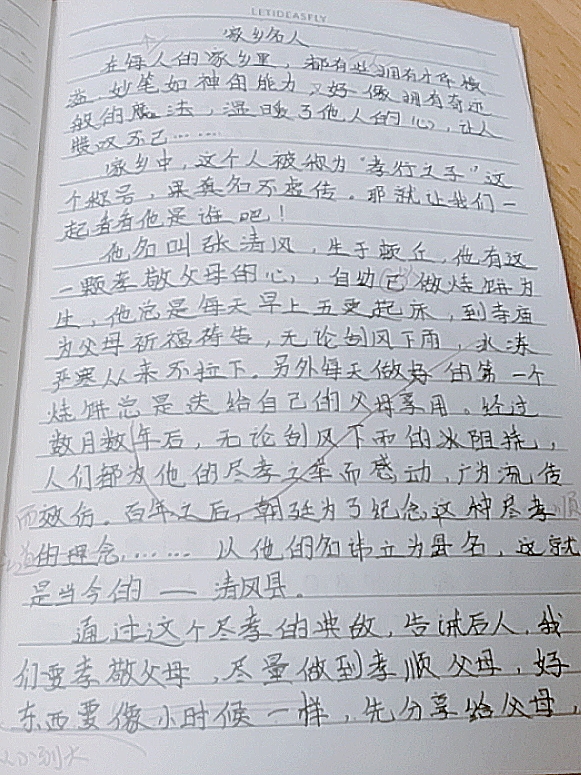 LETIDEASFLY
家乡名人
在每人的家乡里，都有些拥有才华横
溢，妙笔如神的能力，又好像拥有奇迹
般的魔法，温暖了他人的心，让人
赞叹不已……
家乡中，这个人被称为“孝行之子”这
个称号，果真名不虚传。那就让我们一
起看看他是谁吧！
他名叫张清风，生于顿丘，他有这
一颗孝敬父母的心，自幼已做烧饼为
生，他总是每天早上五更起床，到寺庙
为父母祈福祷告，无论刮风下雨，冰冻
严寒从来不拉下。另外每天做好的第一个
烧饼总是送给自己的父母享用。经过
数月数年后，无论刮风下雨的冰阻挠，
人们都为他的尽孝之举而感动，广为流传
而效仿。百年之后，朝廷为了纪念这种尽孝顺
道的理念……以他的名讳立为县名，这就
是当今的——清风县。
通过这个尽孝的典故，告诫后人，我
们要孝敬父母，尽量做到孝顺父母，好
东西要像小时候一样，先分享给父母，
从小到大